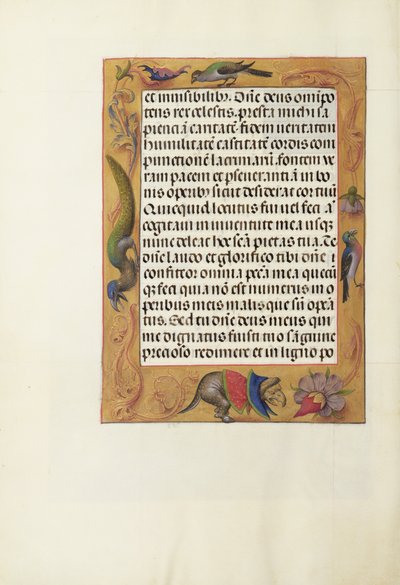 et inuisibiliū. Dn̄e deus omīpo
tens rex celestis. presta michi sa
pienciā caritatē. fidem ueritatem
humilitatē castitatē cordis com
punctionē lacrimarū. fontem ve
ram pacem et pseuerantiā in bo
nis operib; sicut desiderat cor tuū
Quicquid locutus fui uel feci a
cogitaui in iuuentute mea usq;
nunc deleat hoc sc̄a pietas tua. Te
dn̄e laudo et glorifico tibi dn̄e
confiteor omnia pctā mea quecū
q; feci quia nō est numerus in o
peribus meis malis que sū opa
tus. Sed tu dn̄e deus meus qui
me dignatus fuisti tuo sāguine
precioso redimere et in ligno po